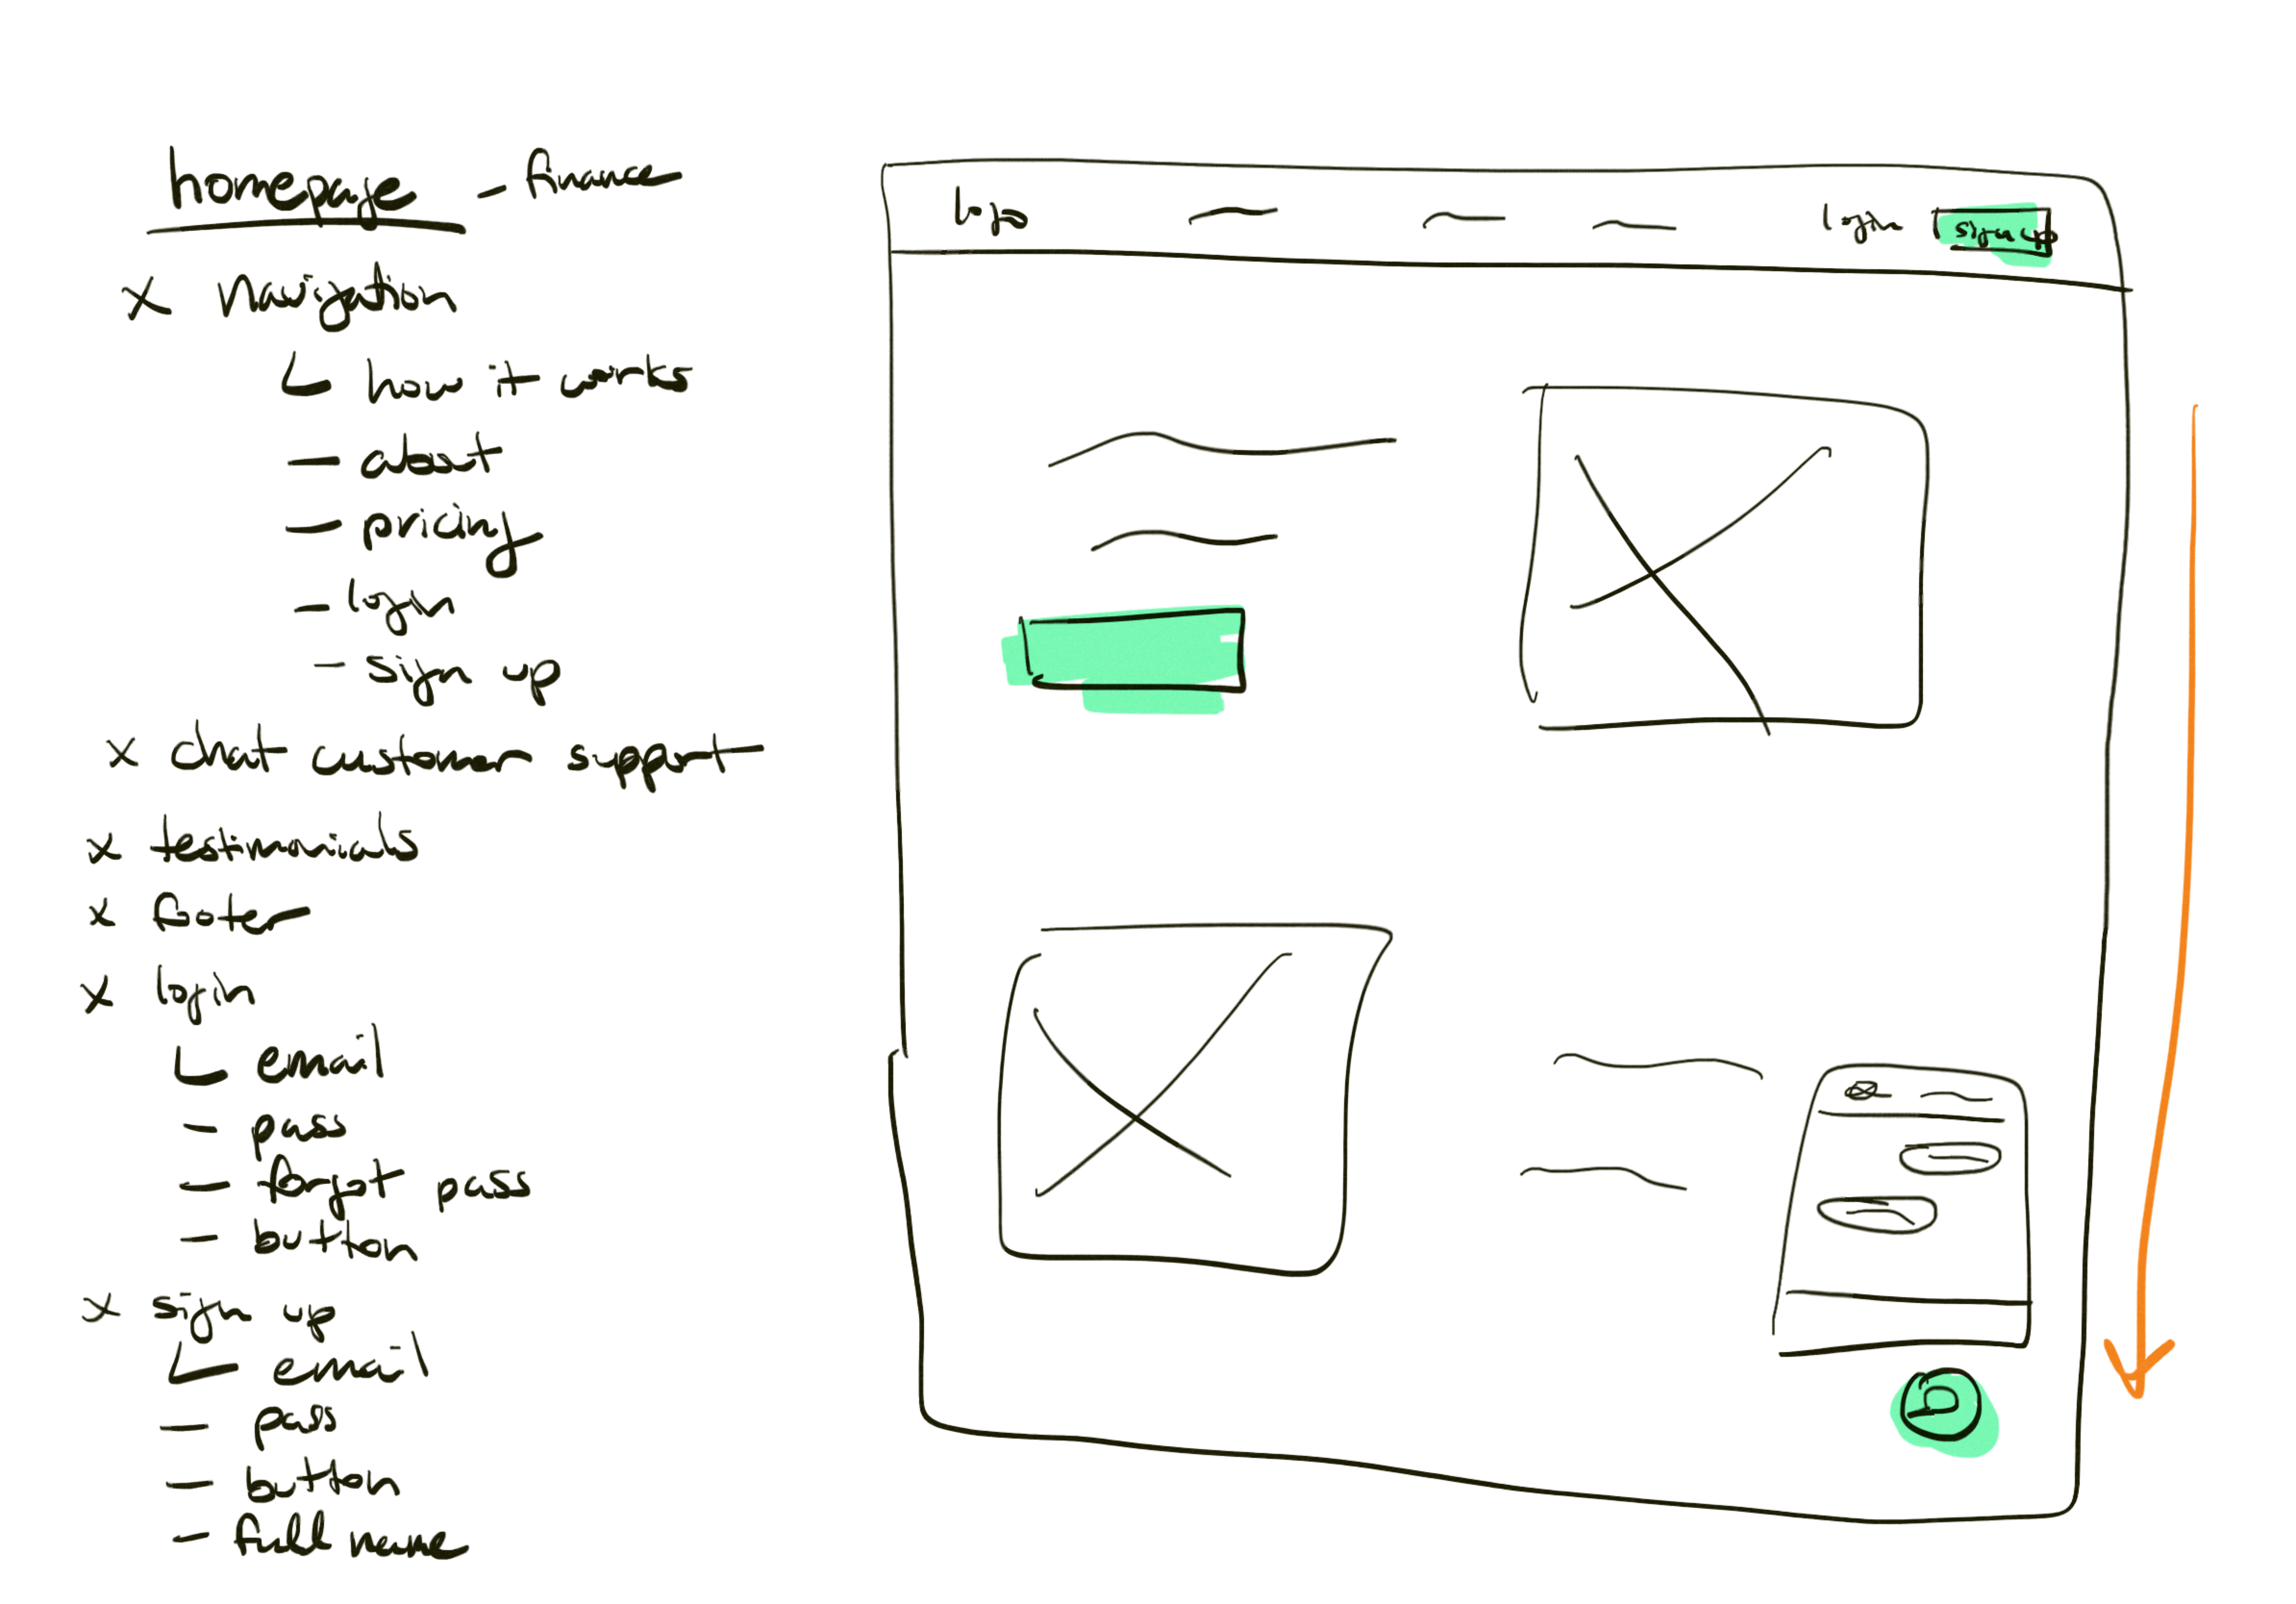 homepage - finance
x Navigation
how it works
- about
- pricing
- login
- sign up
x chat customer support
x testimonials
x footer
x login
email
- pass
- forgot pass
- button
x sign up
email
- pass
- button
- full name
logo login sign up